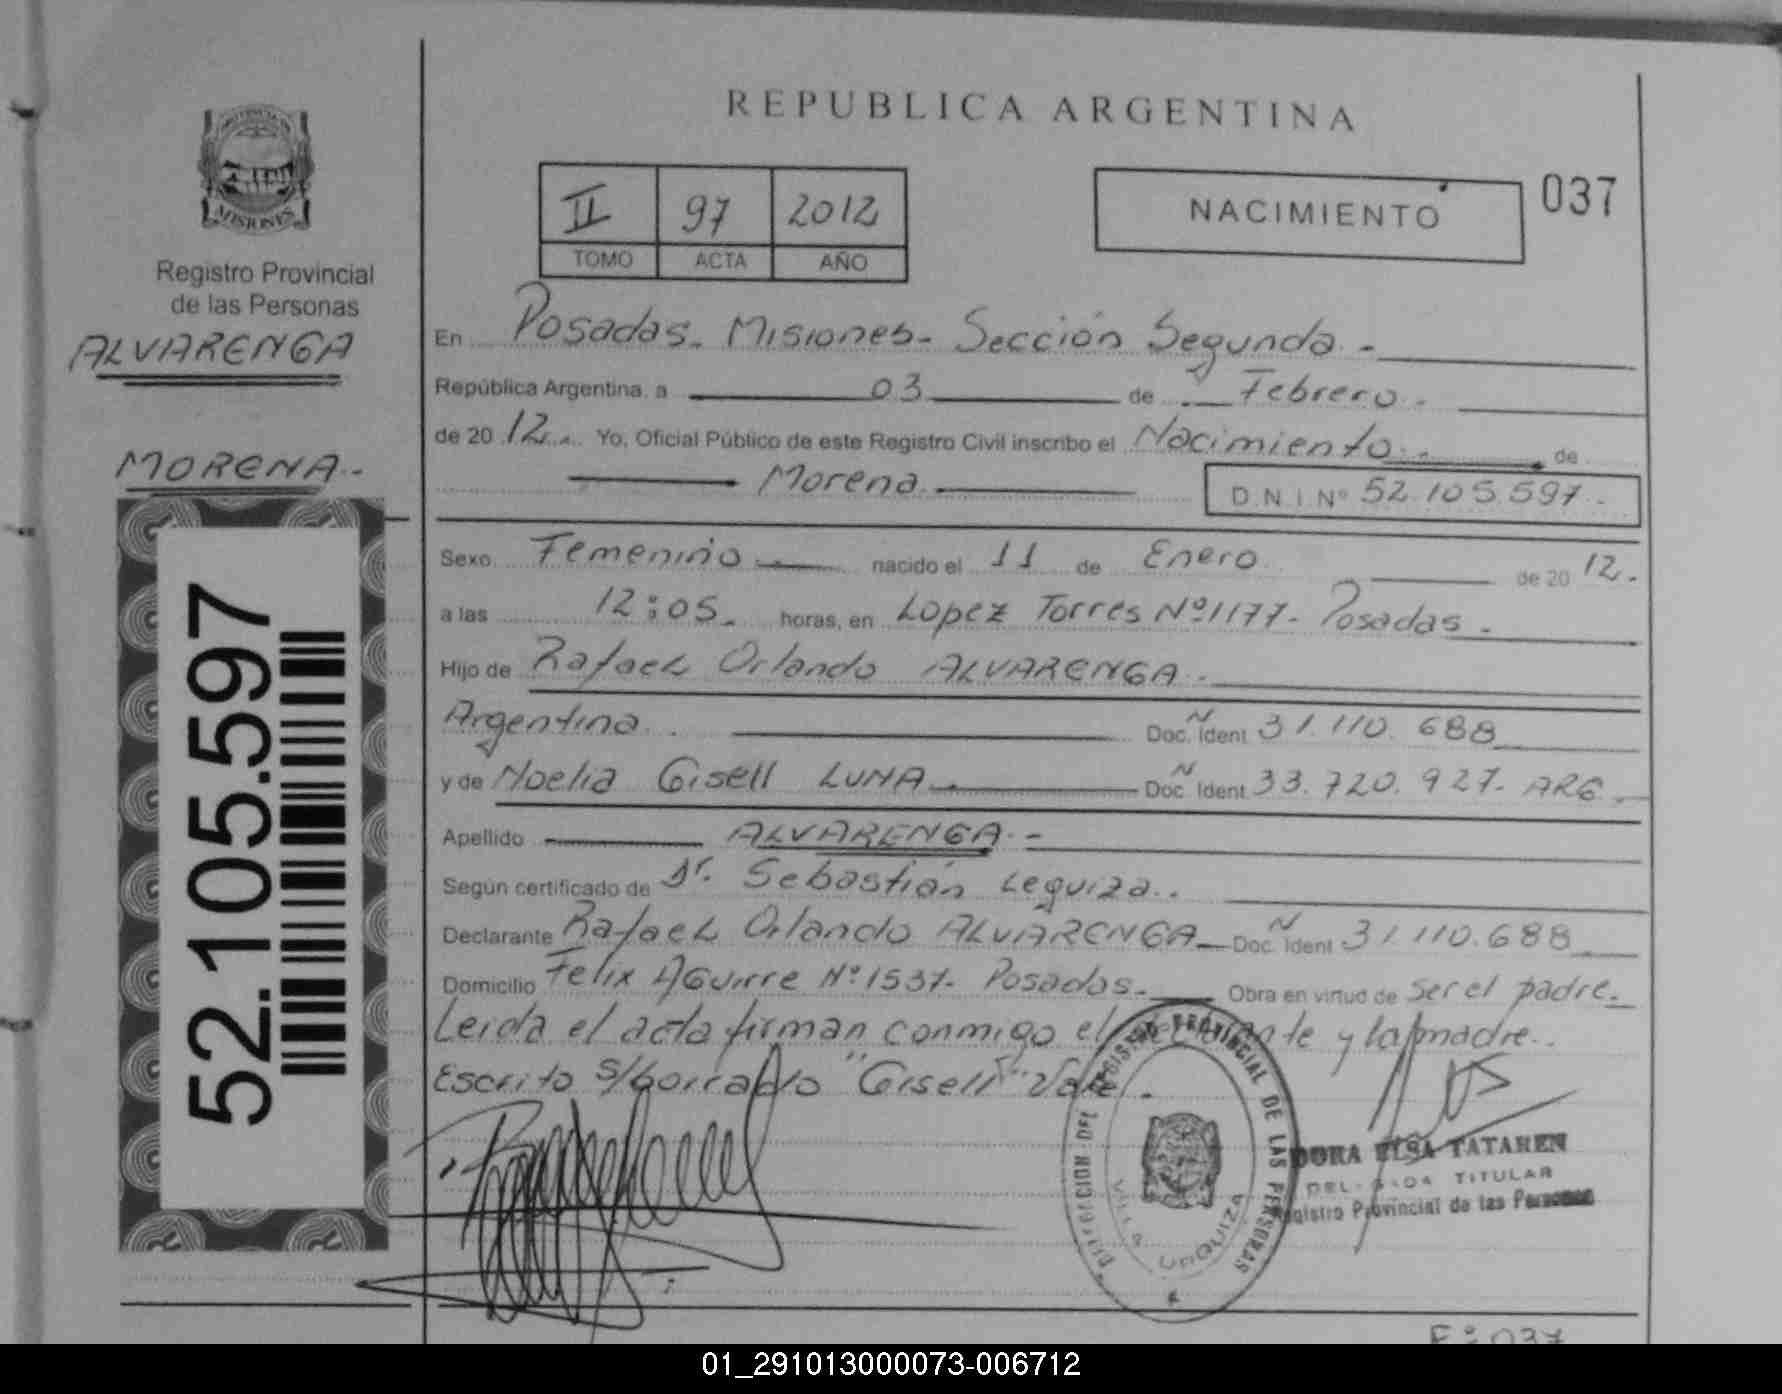 REPUBLICA ARGENTINA
MISIONES
Registro Provincial
de las Personas
ALVARENGA
MORENA.-
52.105.597
II 97 2012
TOMO ACTA AÑO
NACIMIENTO
037
En Posadas. Misiones. Sección Segunda.-
República Argentina, a 03 de Febrero.
de 20 12. Yo, Oficial Público de este Registro Civil inscribo el Nacimiento. de
Morena. D.N.I. Nº 52.105.597.
Sexo Femenino nacido el 11 de Enero de 20 12.
a las 12:05. horas, en Lopez Torres Nº 1177. Posadas.
Hijo de Rafael Orlando ALVARENGA.
Argentina. Doc. Ident. N 31.110.688
y de Noelia Gisell LUNA. Doc. Ident. N 33.720.927. ARG.
Apellido ALVARENGA.-
Según certificado de Dr. Sebastián Leguiza.
Declarante Rafael Orlando ALVARENGA Doc. Ident. N 31.110.688
Domicilio Felix Aguirre Nº 1537. Posadas. Obra en virtud de ser el padre.
Leida el acta firman conmigo el declarante y la madre.
Escrito s/borrado "Gisell" Vale.
DIRECCION DEL REGISTRO PROVINCIAL DE LAS PERSONAS
VILLA URQUIZA
DORA ELSA TATAREN
DELEGADA TITULAR
Registro Provincial de las Personas
Fº 037
01_291013000073-006712